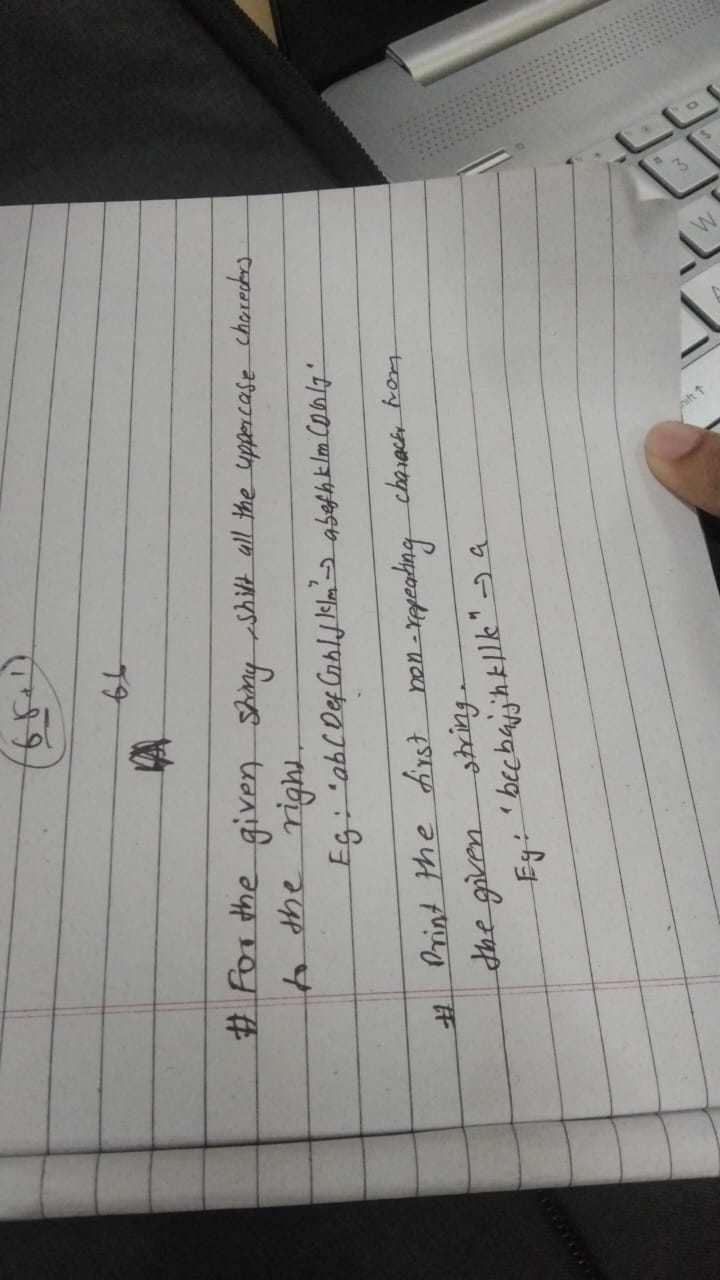 65+1
66
A
# For the given string, shift all the uppercase charecters
to the right.
Eg: "abCDefGhIJklm" → abefhklmCDGIJ.
# Print the first non-repeating character from
the given string.
Eg: "bccbajjhkllk" → a
shift ↑
A
W
3
#
$